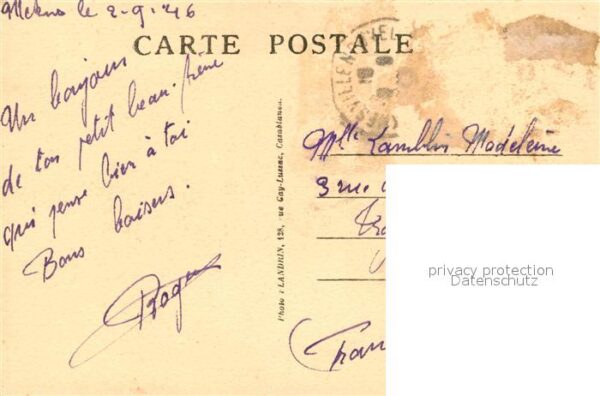 Meknes le 2-9-46
CARTE POSTALE
Un bonjour
de ton petit beau-frère
qui pense bien à toi
Bons baisers.
Photo : LANDRIN, 128, rue Gay-Lussac, Casablanca.
Mlle Lamblin Madeleine
3 rue
privacy protection
Datenschutz